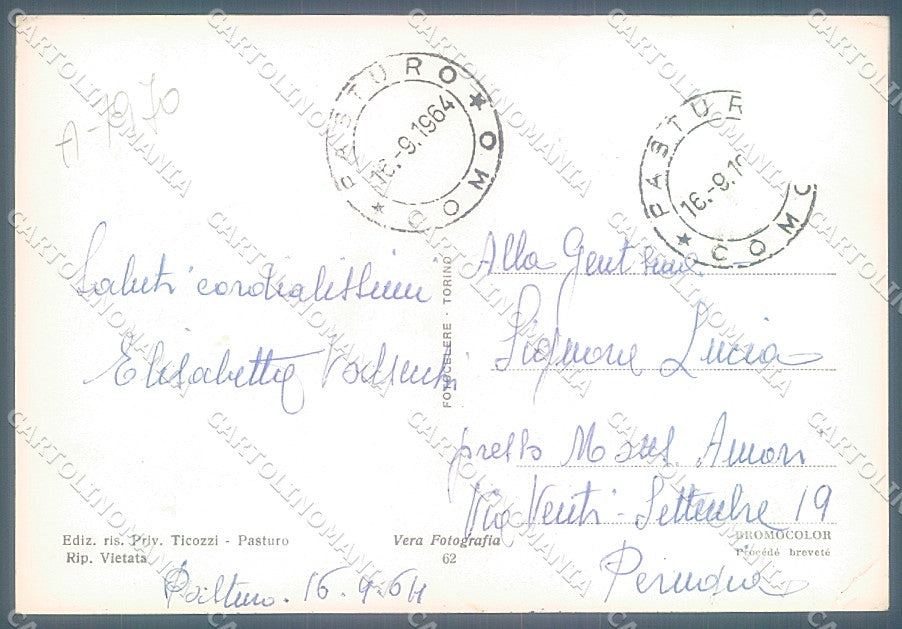 A-1970
PASTURO ★ COMO ★
16.-9.1964
PASTUR COMO ★
16.-9.19
Saluti cordialissimi
Elisabetta
Alla Gent.
Signora Lucia
presso
Via Venti Settembre 19
Perugia
FOTOCELERE · TORINO
Ediz. ris. Priv. Ticozzi - Pasturo
Rip. Vietata
Vera Fotografia
62
BROMOCOLOR
Procédé breveté
Pasturo. 16.9.64
CARTOLINOMANIA